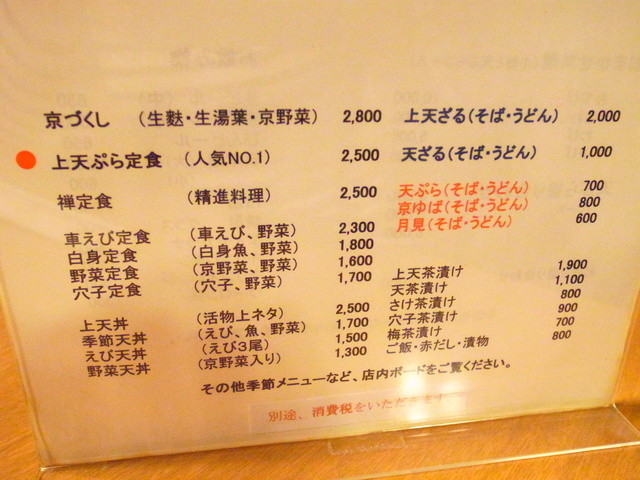 京づくし （生麩・生湯葉・京野菜） 2,800
上天ぷら定食 （人気NO.1） 2,500
禅定食 （精進料理） 2,500
車えび定食 （車えび、野菜） 2,300
白身定食 （白身魚、野菜） 1,800
野菜定食 （京野菜、野菜） 1,600
穴子定食 （穴子、野菜） 1,700
上天丼 （活物上ネタ） 2,500
季節天丼 （えび、魚、野菜） 1,700
えび天丼 （えび３尾） 1,500
野菜天丼 （京野菜入り） 1,300
上天ざる（そば・うどん） 2,000
天ざる（そば・うどん） 1,000
天ぷら（そば・うどん） 700
京ゆば（そば・うどん） 800
月見（そば・うどん） 600
上天茶漬け 1,900
天茶漬け 1,100
さけ茶漬け 800
穴子茶漬け 900
梅茶漬け 700
ご飯・赤だし・漬物 800
その他季節メニューなど、店内ボードをご覧ください。
別途、消費税をいただきます